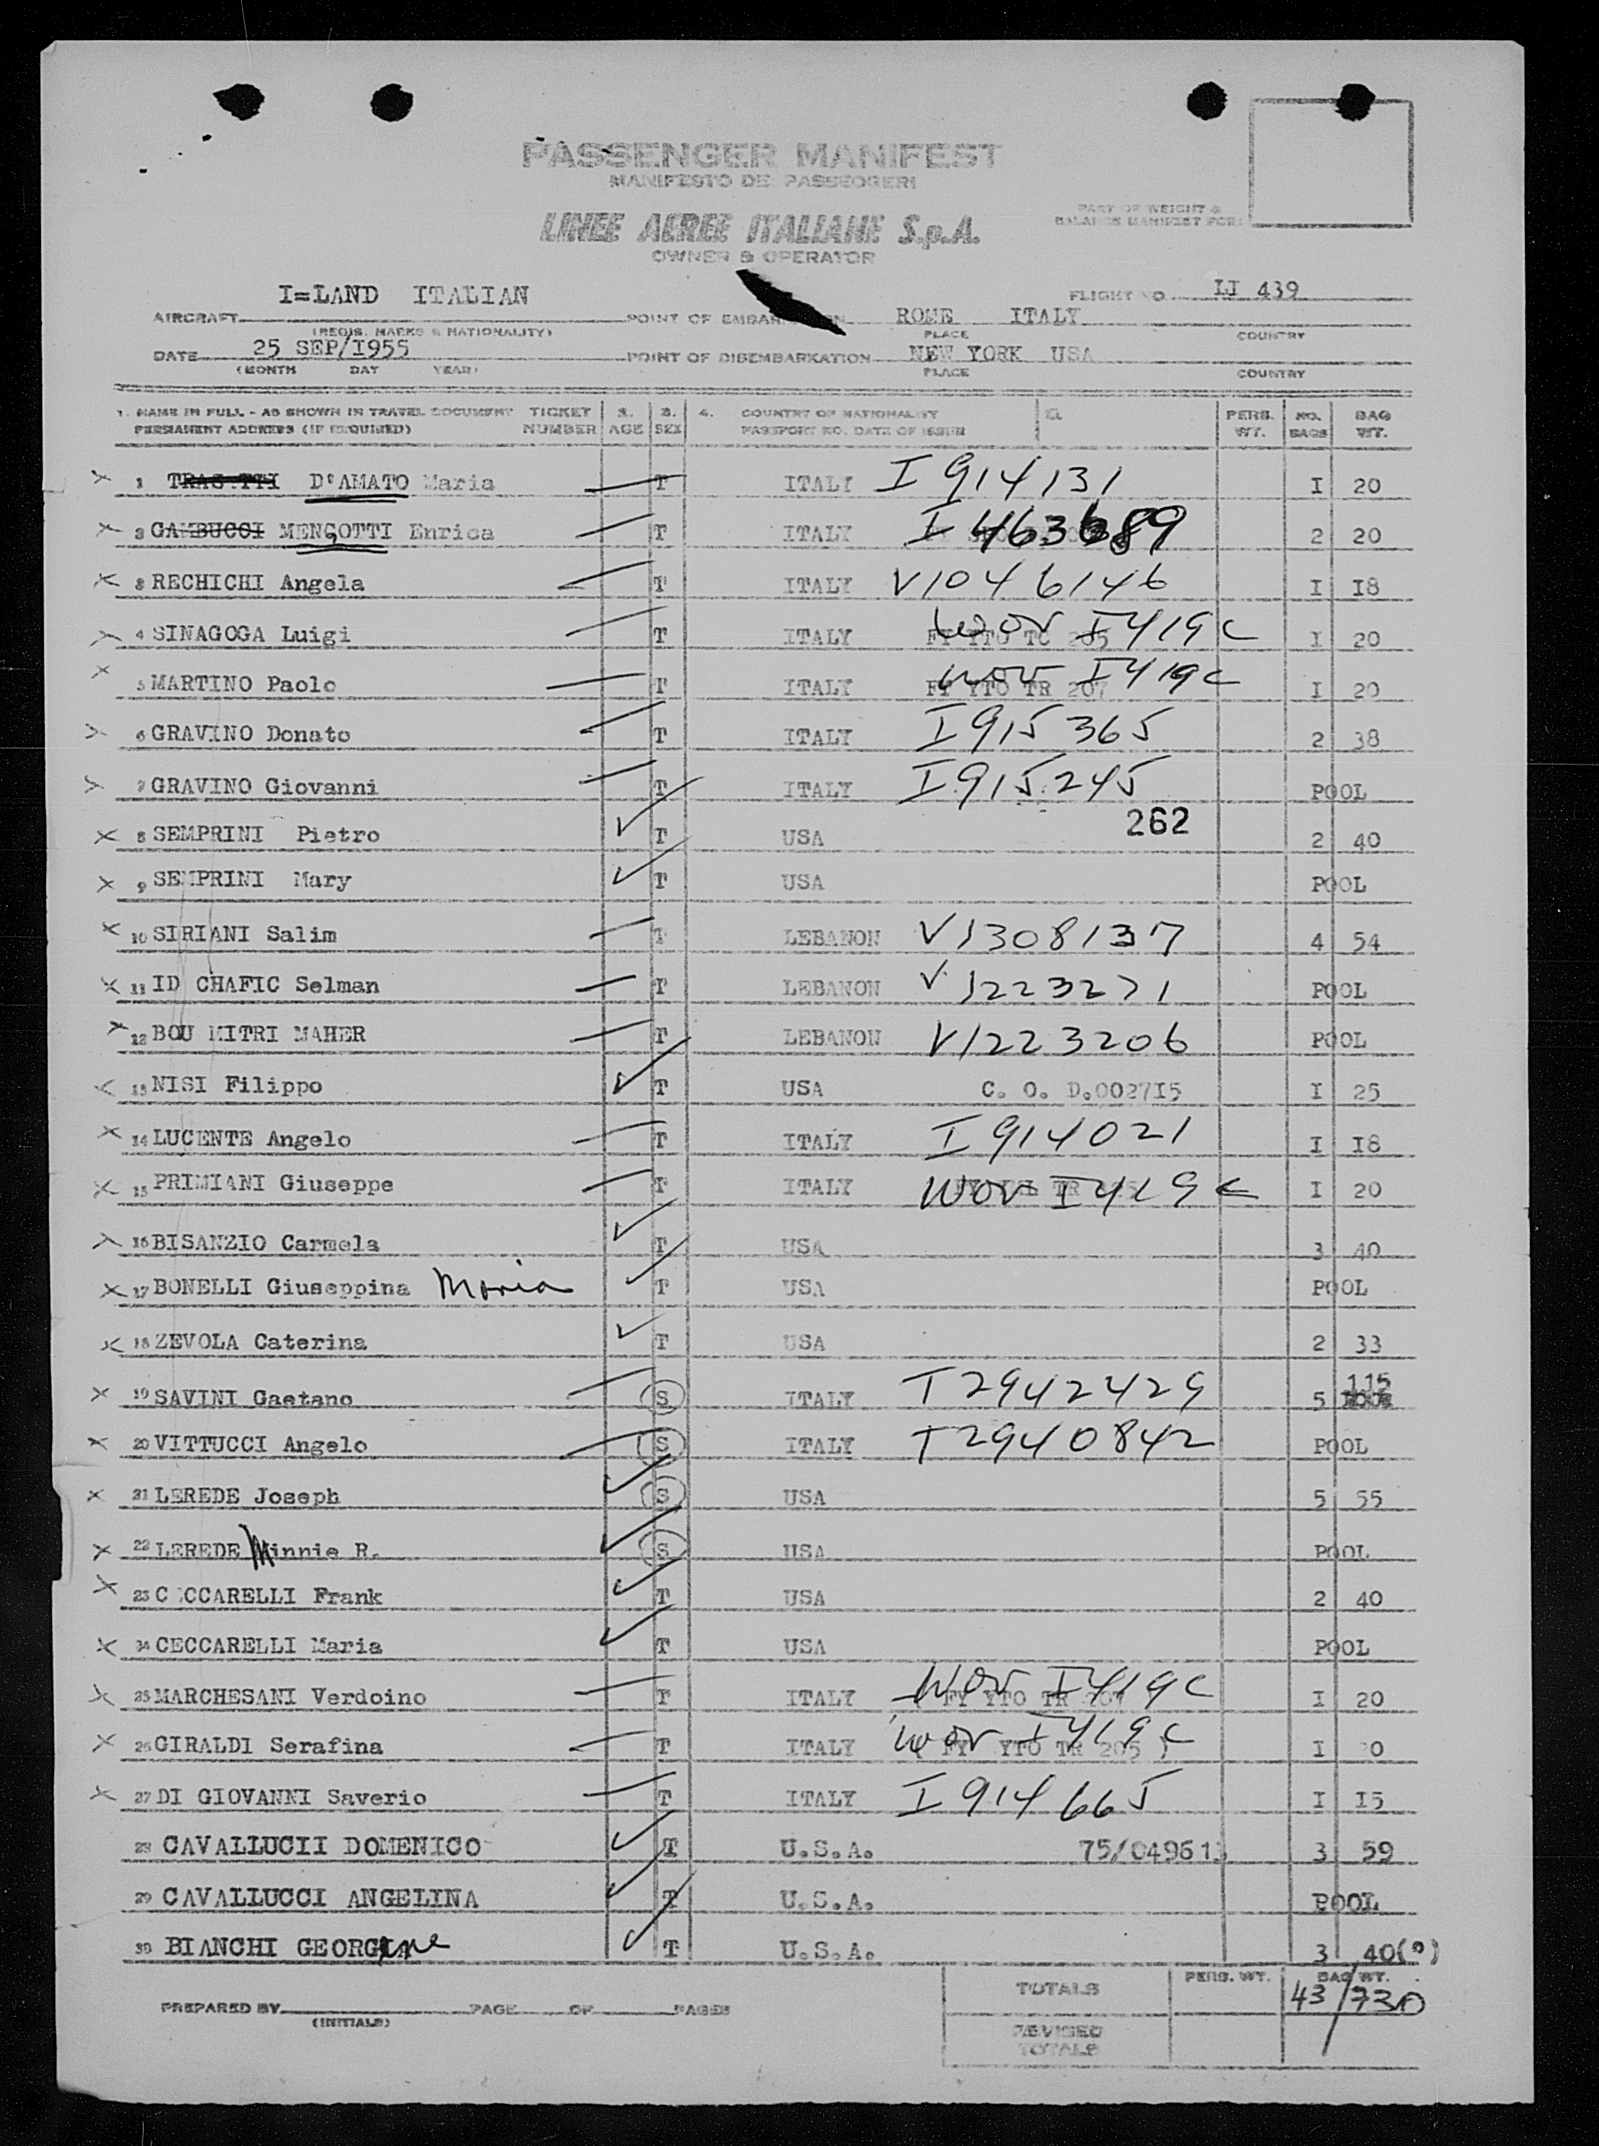 PASSENGER MANIFEST
MANIFESTO DEI PASSEGGERI
LINEE AEREE ITALIANE S.p.A.
OWNER & OPERATOR
PART OF WEIGHT &
BALANCE MANIFEST FOR:
I=LAND ITALIAN FLIGHT NO. LI 439
AIRCRAFT POINT OF EMBARKATION ROME ITALY
(REGIS. MARKS & NATIONALITY) PLACE COUNTRY
DATE 25 SEP/I955 POINT OF DISEMBARKATION NEW YORK USA
(MONTH DAY YEAR) PLACE COUNTRY
1. NAME IN FULL - AS SHOWN IN TRAVEL DOCUMENT TICKET 2. 3. 4. COUNTRY OF NATIONALITY PERS. NO. BAG
PERMANENT ADDRESS (IF REQUIRED) NUMBER AGE SEX PASSPORT NO. DATE OF ISSUE WT. BAGS WT.
1 D'AMATO Maria T ITALY I 914131 I 20
2 GAMBUCCI MENGOTTI Enrica T ITALY I 463689 2 20
3 RECHICHI Angela T ITALY V1046146 I I8
4 SINAGOGA Luigi T ITALY FY YTO TC 205 WOV I419C I 20
5 MARTINO Paolo T ITALY FY YTO TR 207 WOV I419C I 20
6 GRAVINO Donato T ITALY I 915365 2 38
7 GRAVINO Giovanni T ITALY I 915245 POOL
262
8 SEMPRINI Pietro T USA 2 40
9 SEMPRINI Mary T USA POOL
10 SIRIANI Salim T LEBANON V1308137 4 54
11 ID CHAFIC Selman T LEBANON V1223271 POOL
12 BOU MITRI MAHER T LEBANON V1223206 POOL
13 NISI Filippo T USA C. O. D.0027I5 I 25
14 LUCENTE Angelo T ITALY I 914021 I I8
15 PRIMIANI Giuseppe T ITALY WOV I419C I 20
16 BISANZIO Carmela T USA 3 40
17 BONELLI Giuseppina Maria T USA POOL
18 ZEVOLA Caterina T USA 2 33
19 SAVINI Gaetano S ITALY T2942429 5 115
20 VITTUCCI Angelo S ITALY T2940842 POOL
21 LEREDE Joseph S USA 5 55
22 LEREDE Minnie R. S USA POOL
23 C CCARELLI Frank T USA 2 40
24 CECCARELLI Maria T USA POOL
25 MARCHESANI Verdoino T ITALY FY YTO TR 207 WOV I419C I 20
26 GIRALDI Serafina T ITALY FY YTO TR 205 WOV I419C I 0
27 DI GIOVANNI Saverio T ITALY I 914665 I I5
28 CAVALLUCII DOMENICO T U.S.A. 75/049613 3 59
29 CAVALLUCCI ANGELINA T U.S.A. POOL
30 BIANCHI GEORGene T U.S.A. 3 40(°)
TOTALS PERS. WT. BAG WT.
43/730
PREPARED BY PAGE OF PAGES
(INITIALS)
REVISED
TOTALS